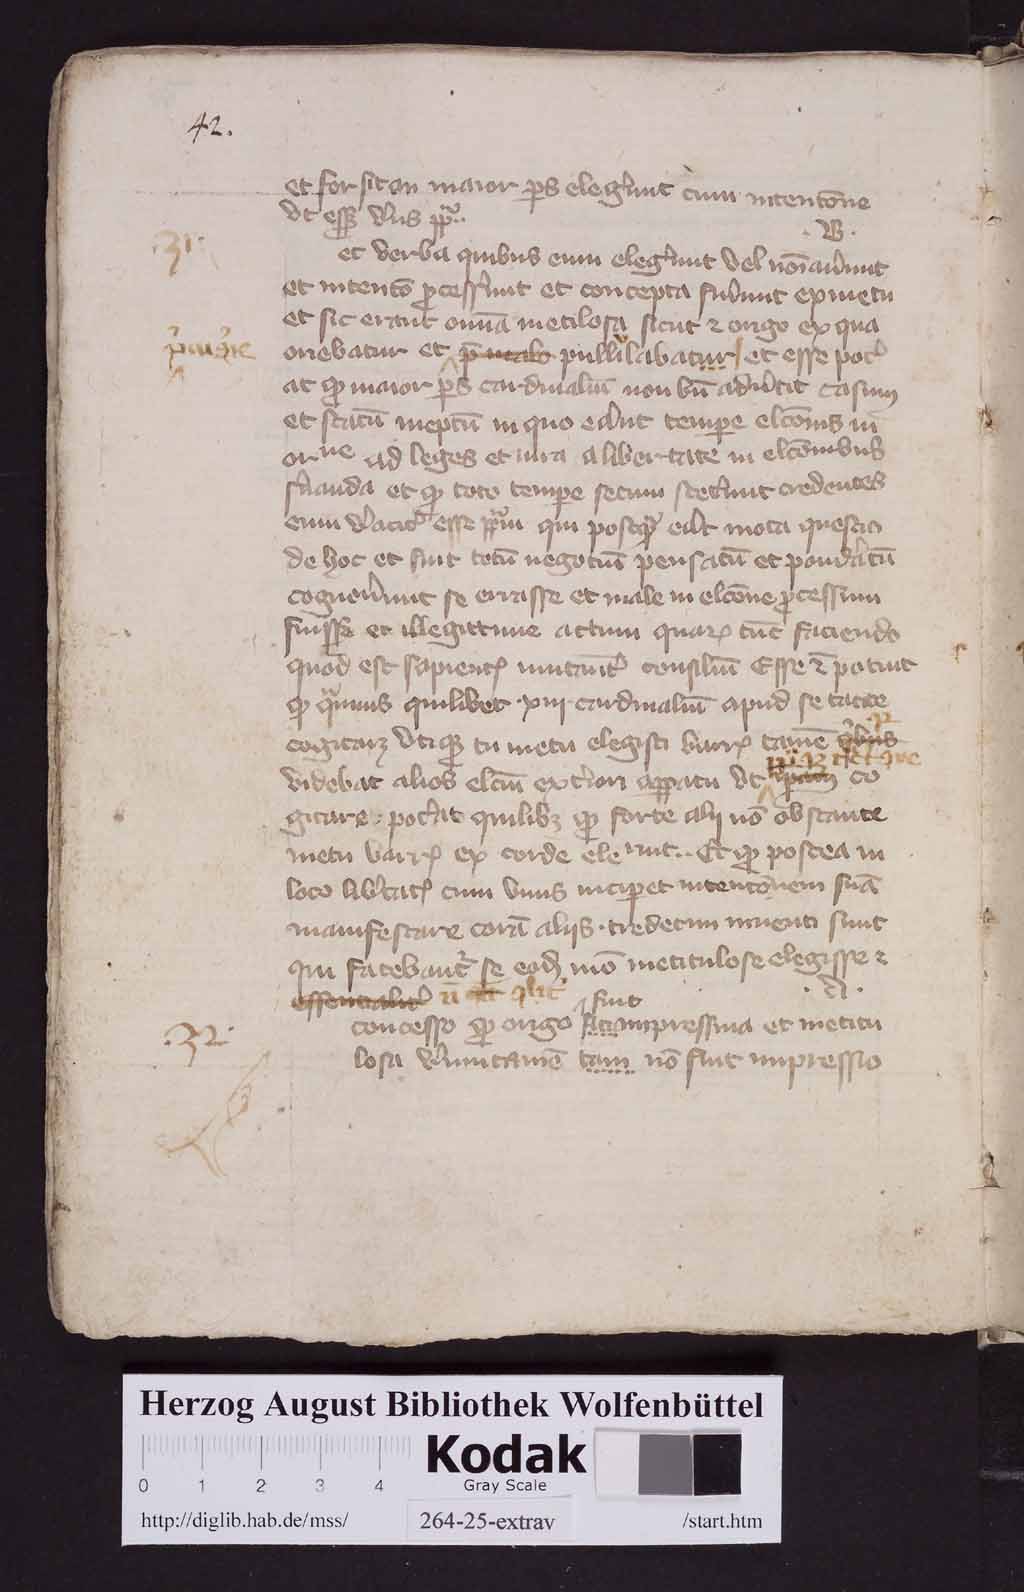 42.
et forsitan maior ps elegerunt cum intentone
ut esset verus ppa
.B.
31.
et verba quibus eum elegerunt vel noiaverunt
et intento processerunt et concepta fuerunt ex metu
et sic erant omnia meticulosa sicut et origo ex qua
oriebatur et pullulabatur et esse poterat
at quod maior ps cardinalium non bn advertit casum
et statum ineptum in quo erant tempore elconis in
orne ad leges et iura a libertate in elconibus
servanda et quod toto tempore secum steterunt credentes
eum veraciter esse ppam qui postquam erat mota questio
de hoc et fuit totum negotium pensatum et ponderatum
cognoverunt se errasse et male in elcone processum
fuisse et illegittime actum quare tunc faciendo
quod est sapientis mutarunt consilium Esse etiam potuit
quod quamvis quilibet xiii cardinalium apud se tacite
cogitaret utique tu metu elegisti barre tamen
videbat alios elcoi exteriori apparatu ut co
gitare poterat quilibet quod forte alii non obstante
metu barre ex corde elerunt. Et quod postea in
loco libertatis cum unus inciperet intentonem suam
manifestare coram aliis. tredecim inventi sunt
qui fatebantur se eodem modo meticulose elegisse et
essentialiter
.A.
32.
concesso quod origo fuit impressiva et meticu
losa verumtamen tam non fuit impressio
Herzog August Bibliothek Wolfenbüttel
Kodak
Gray Scale
0 1 2 3 4
http://diglib.hab.de/mss/ 264-25-extrav /start.htm